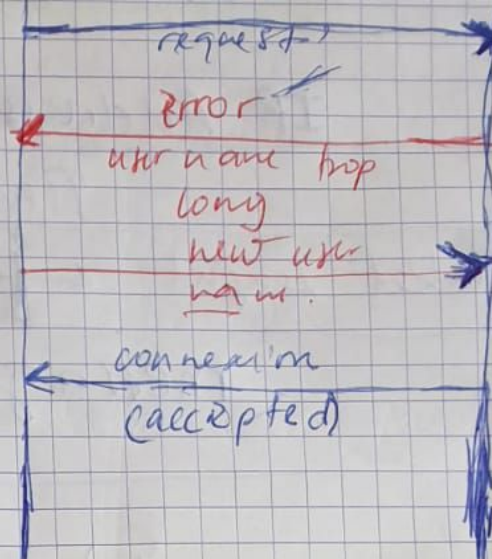 request
Error
username trop
long
new user
name.
connexion
(accepted)